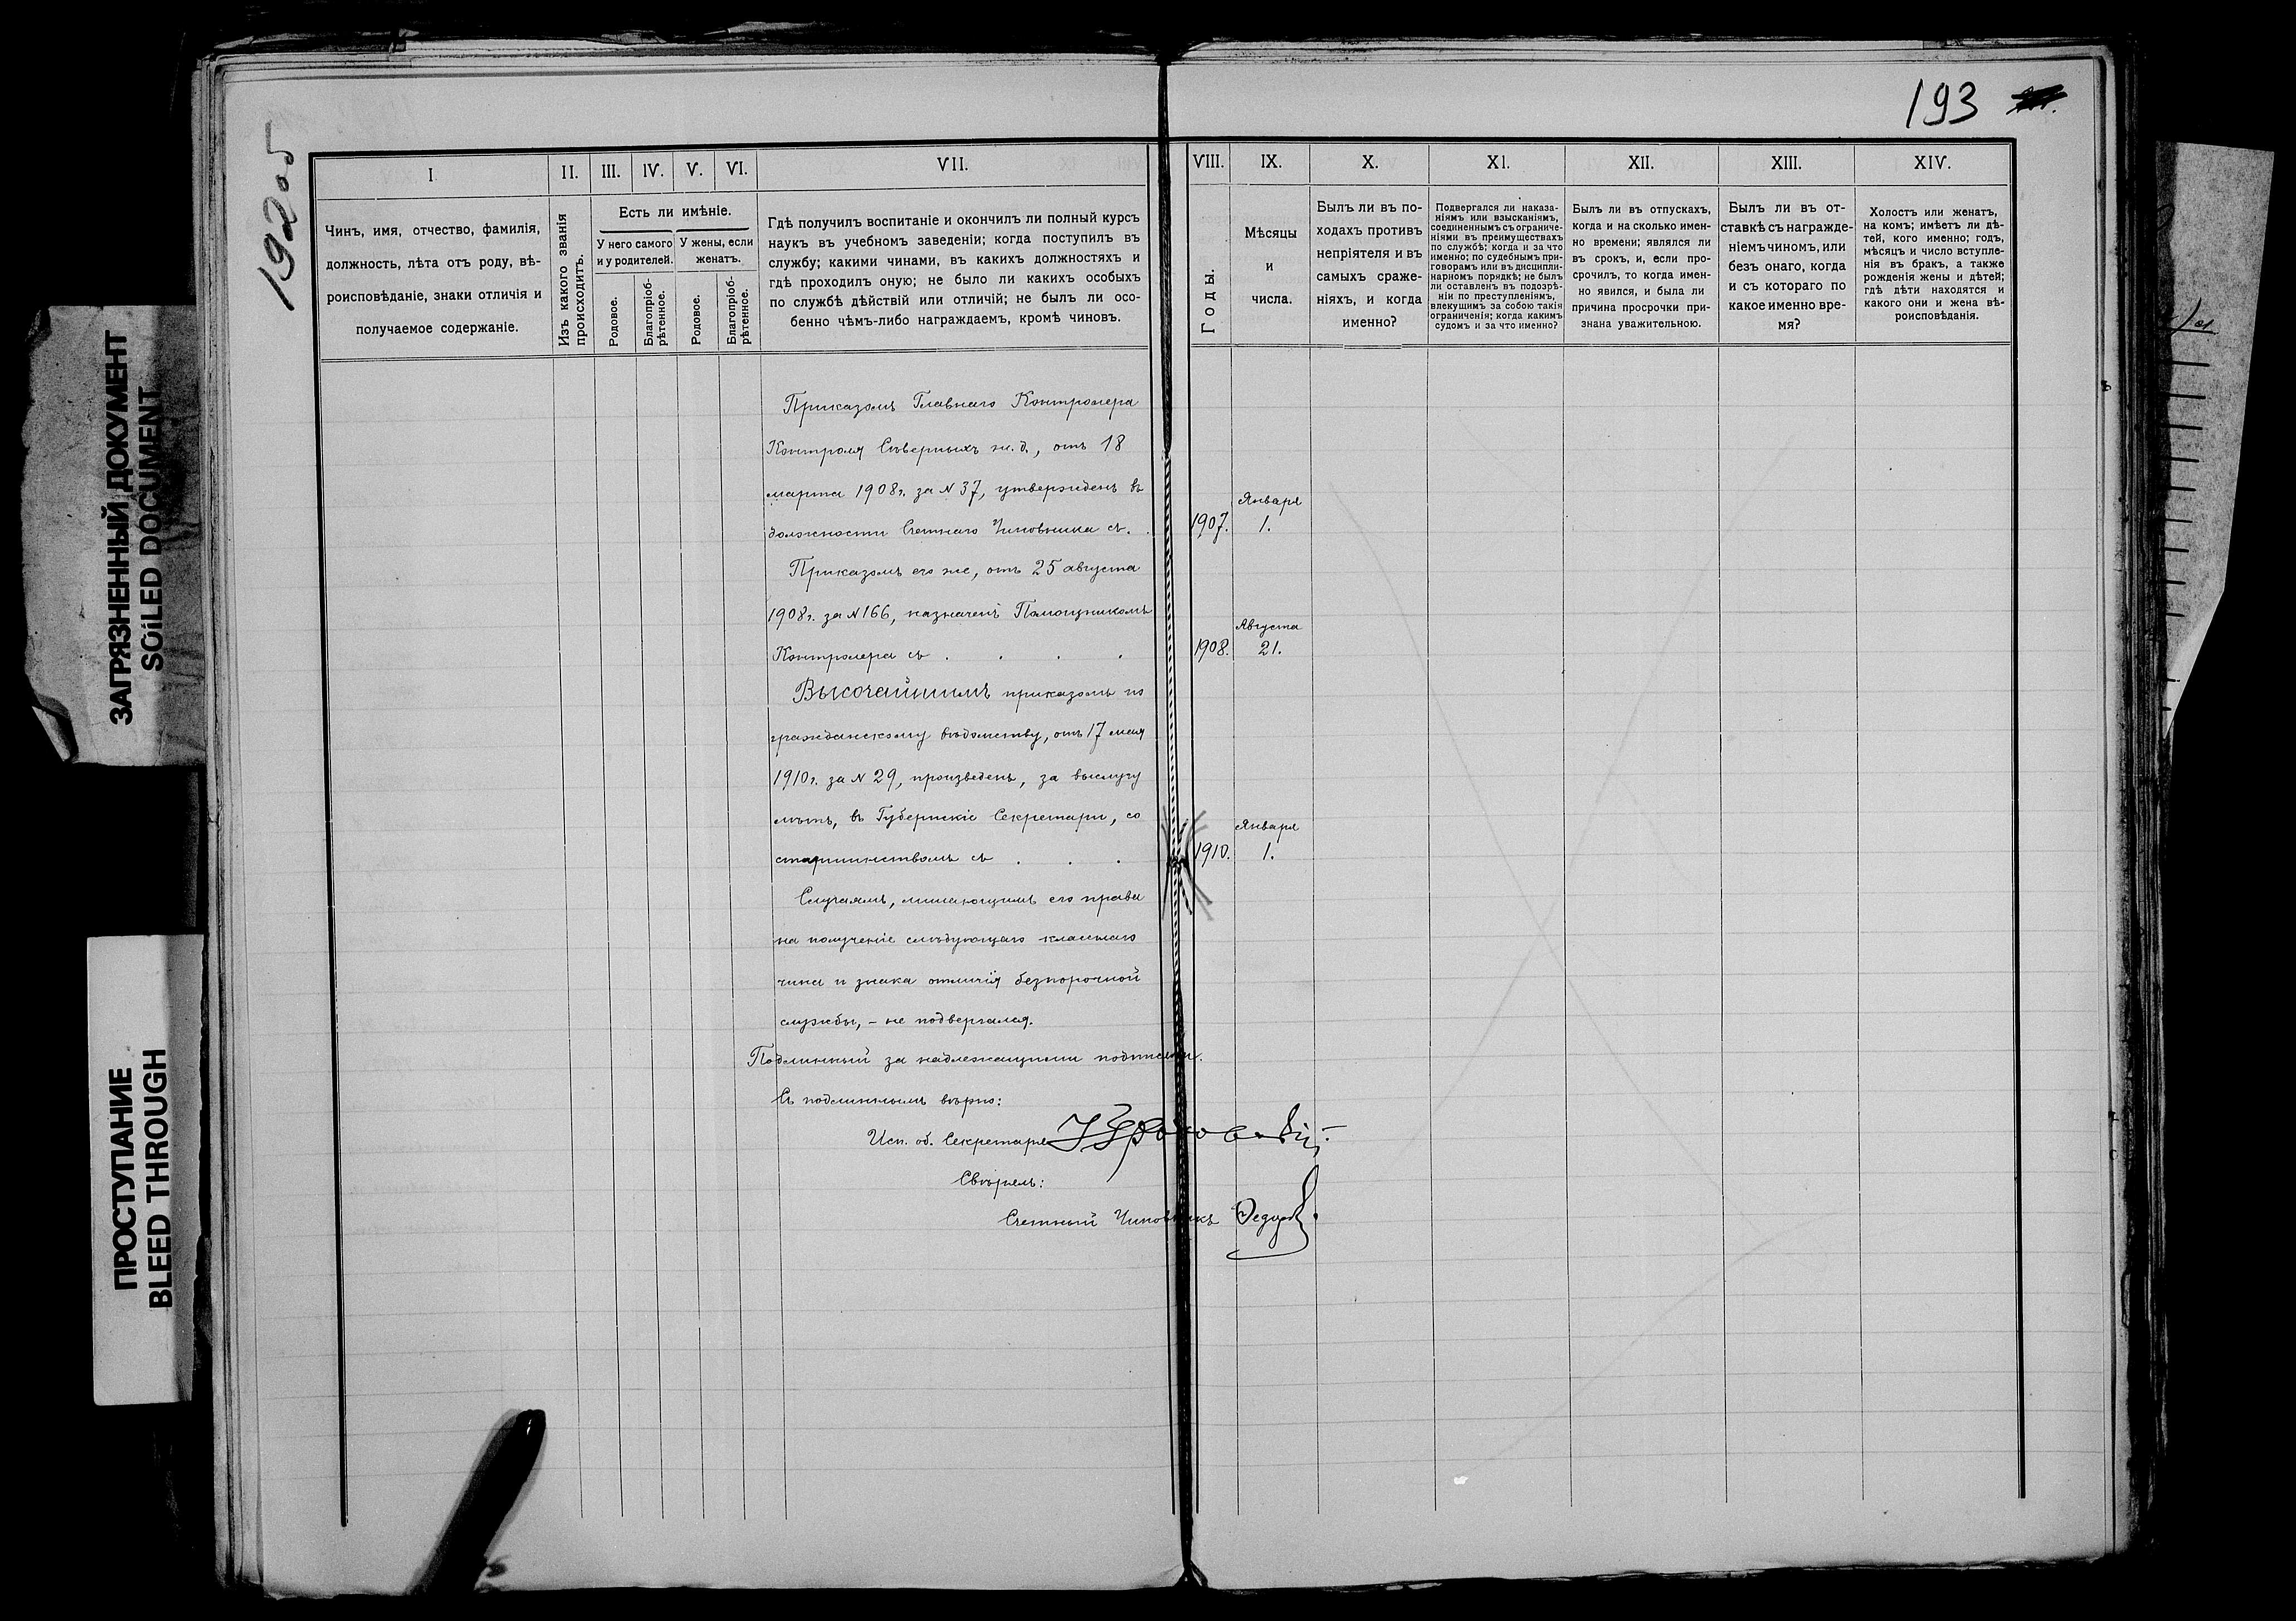 193
192 об
ЗАГРЯЗНЕННЫЙ ДОКУМЕНТ
SOILED DOCUMENT
ПРОСТУПАНИЕ
BLEED THROUGH
I.
Чинъ, имя, отчество, фамилія,
должность, лѣта отъ роду, вѣ-
роисповѣданіе, знаки отличія и
получаемое содержаніе.
II.
Изъ какого званія
происходитъ.
III. IV. V. VI.
Есть ли имѣніе.
У него самого
и у родителей.
У жены, если
женатъ.
Родовое.
Благопріоб-
рѣтенное.
Родовое.
Благопріоб-
рѣтенное.
VII.
Гдѣ получилъ воспитаніе и окончилъ ли полный курсъ
наукъ въ учебномъ заведеніи; когда поступилъ въ
службу; какими чинами, въ какихъ должностяхъ и
гдѣ проходилъ оную; не было ли какихъ особыхъ
по службѣ дѣйствій или отличій; не былъ ли осо-
бенно чѣмъ-либо награждаемъ, кромѣ чиновъ.
VIII.
Годы.
IX.
Мѣсяцы
и
числа.
X.
Былъ ли въ по-
ходахъ противъ
непріятеля и въ
самыхъ сраже-
ніяхъ, и когда
именно?
XI.
Подвергался ли наказа-
ніямъ или взысканіямъ,
соединеннымъ съ ограниче-
ніями въ преимуществахъ
по службѣ; когда и за что
именно; по судебнымъ при-
говорамъ или въ дисципли-
нарномъ порядкѣ; не былъ
ли оставленъ въ подозрѣ-
ніи по преступленіямъ,
влекущимъ за собою такія
ограниченія; когда какимъ
судомъ и за что именно?
XII.
Былъ ли въ отпускахъ,
когда и на сколько имен-
но времени; являлся ли
въ срокъ, и, если про-
срочилъ, то когда имен-
но явился, и была ли
причина просрочки при-
знана уважительною.
XIII.
Былъ ли въ от-
ставкѣ съ награжде-
ніемъ чиномъ, или
безъ онаго, когда
и съ котораго по
какое именно вре-
мя?
XIV.
Холостъ или женатъ,
на комъ; имѣетъ ли дѣ-
тей, кого именно; годъ,
мѣсяцъ и число вступле-
нія въ бракъ, а также
рожденія жены и дѣтей;
гдѣ дѣти находятся и
какого они и жена вѣ-
роисповѣданія.
Приказомъ Главнаго Контролера
Контроля Сѣверныхъ ж.д., отъ 18
марта 1908г. за N 37, утвержденъ въ
должности Счетнаго Чиновника съ. 1907. Января 1.
Приказомъ его же, отъ 25 августа
1908г. за N 166, назначенъ Помощникомъ
Контролера съ . . . . 1908. Августа 21.
Высочайшимъ приказомъ по
гражданскому вѣдомству, отъ 17 мая
1910г. за N 29, произведенъ, за выслугу
лѣтъ, въ Губернскіе Секретари, со
старшинствомъ съ . . . 1910. Января 1.
Случаямъ, лишающимъ его права
на полученіе слѣдующаго класснаго
чина и знака отличія безпорочной
службы, – не подвергался.
Подлинный за надлежащими подписями.
Съ подлиннымъ вѣрно:
Исп. об. Секретаря
Свѣрялъ:
Счетный Чиновникъ